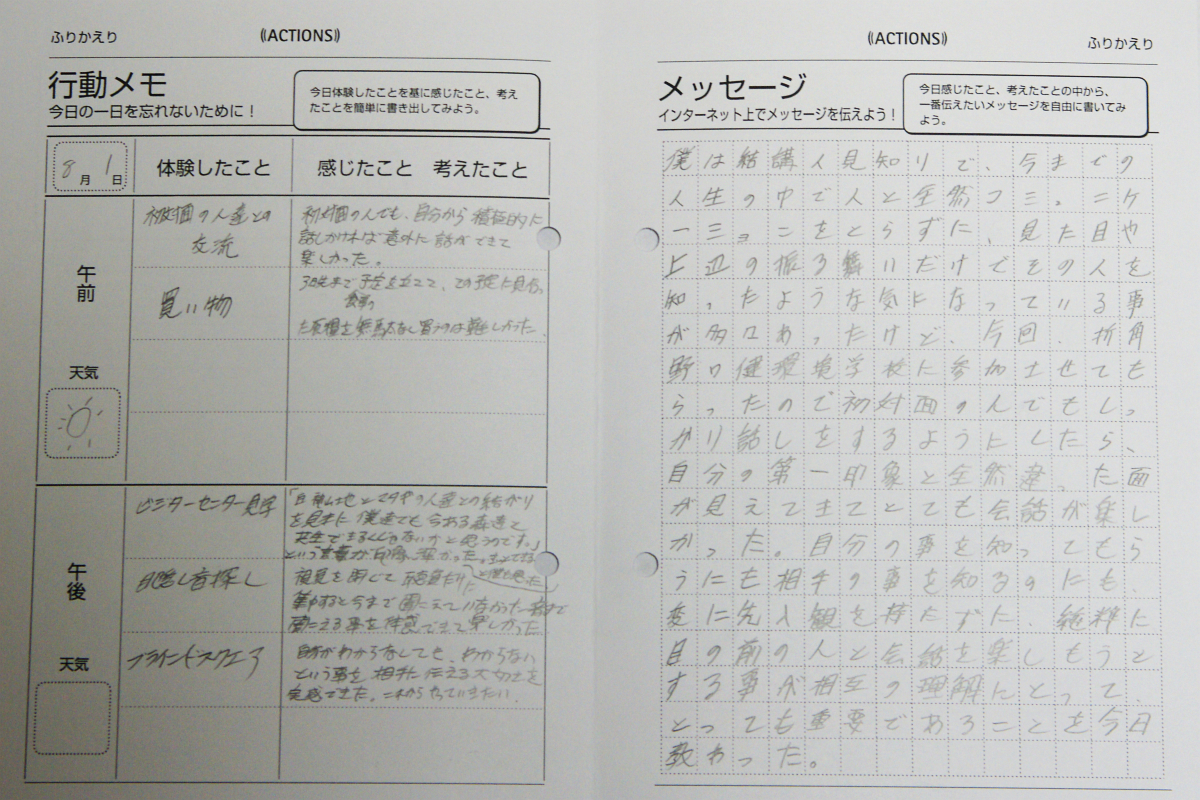 ふりかえり
((ACTIONS))
行動メモ
今日の一日を忘れないために！
今日体験したことを基に感じたこと、考え
たことを簡単に書き出してみよう。
8月1日
体験したこと
感じたこと 考えたこと
午前
の人達との
交流
の人でも、自分から積極的に
話しかければ意外に話ができて
楽しかった。
買い物
買うのは難しかった。
天気
午後
ビジターセンター見学
の人達との繋がり
を見本に僕達でも今ある森達と
共生できるんじゃないかと思うのです。」
という言葉が印象深かった。
目隠し音探し
視覚を閉じて聴覚だけに
集中すると今まで聞こえていなかった
聞こえる事を体感できて楽しかった。
ブラインドスクエア
自分がわからなくても、わからない
という事を相手に伝える大切さを
実感できた。これからやっていきたい。
天気
((ACTIONS))
ふりかえり
メッセージ
インターネット上でメッセージを伝えよう！
今日感じたこと、考えたことの中から、
一番伝えたいメッセージを自由に書いてみ
よう。
僕は結構人見知りで、今までの
人生の中で人と全然コミュニケ
ーションをとらずに、見た目や
上辺の振る舞いだけでその人を
知ったような気になっている事
が多々あったけど、今回、折角
野口健環境学校に参加させても
らったので初対面の人でもしっ
かり話しをするようにしたら、
自分の第一印象と全然違った面
が見えてきてとても会話が楽し
かった。自分の事を知ってもら
うにも相手の事を知るのにも、
変に先入観を持たずに、純粋に
目の前の人と会話を楽しもうと
する事が相互の理解にとって、
とっても重要であることを今日
教わった。